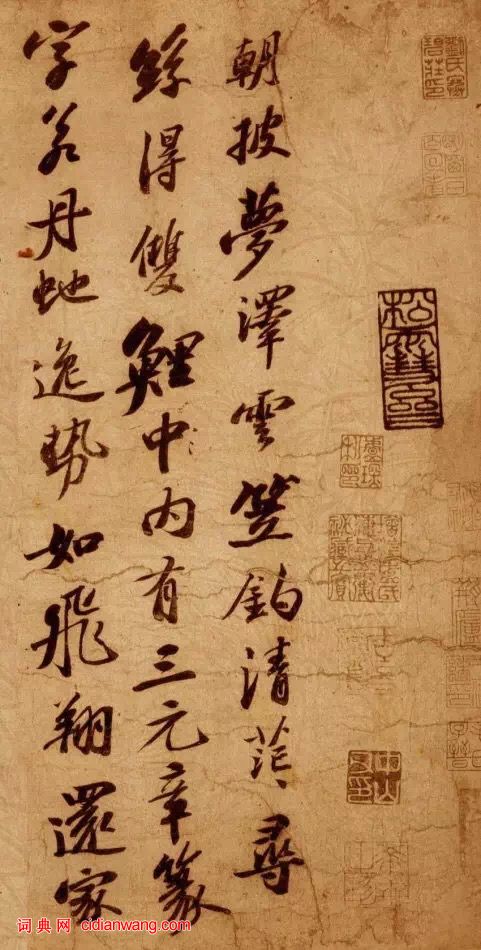 朝披夢澤雲笠釣清茫茫尋
絲得雙鯉中內有三元章篆
字若丹虵逸勢如飛翔還家
松雪齋
词典网 cidianwang.com